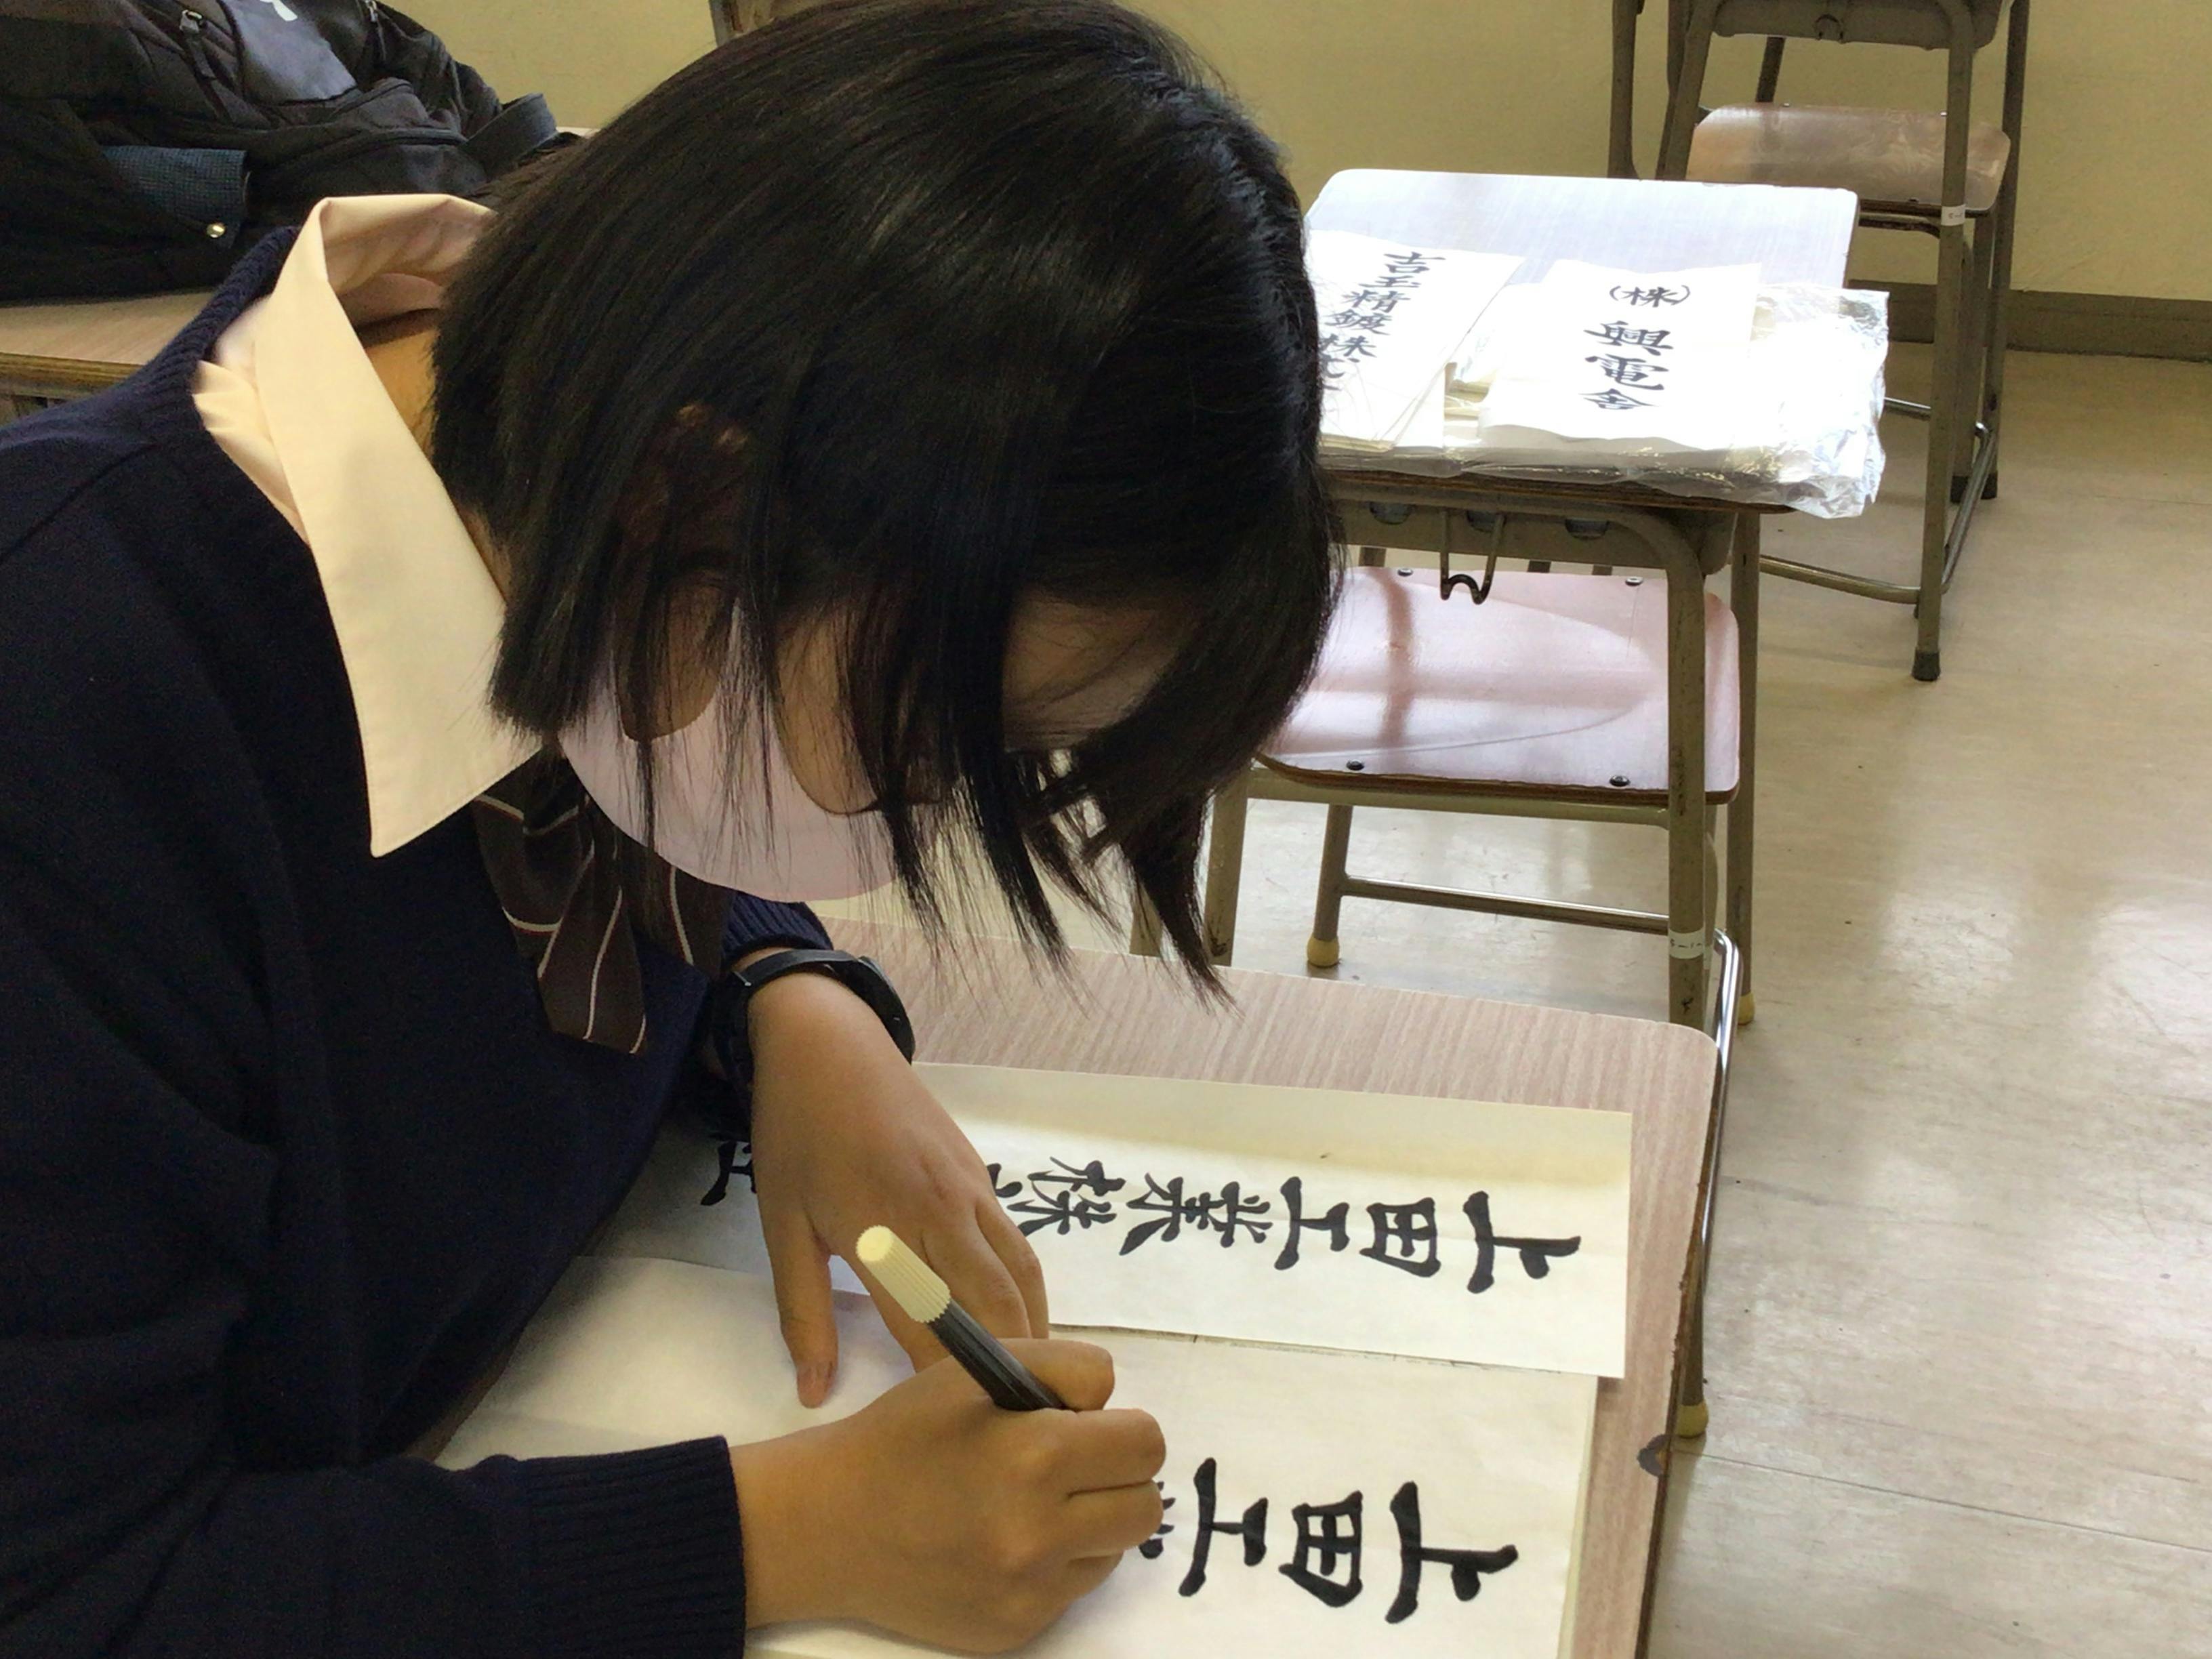 吉玉精鍍株式
(株)興電舎
上田工業株
上田工